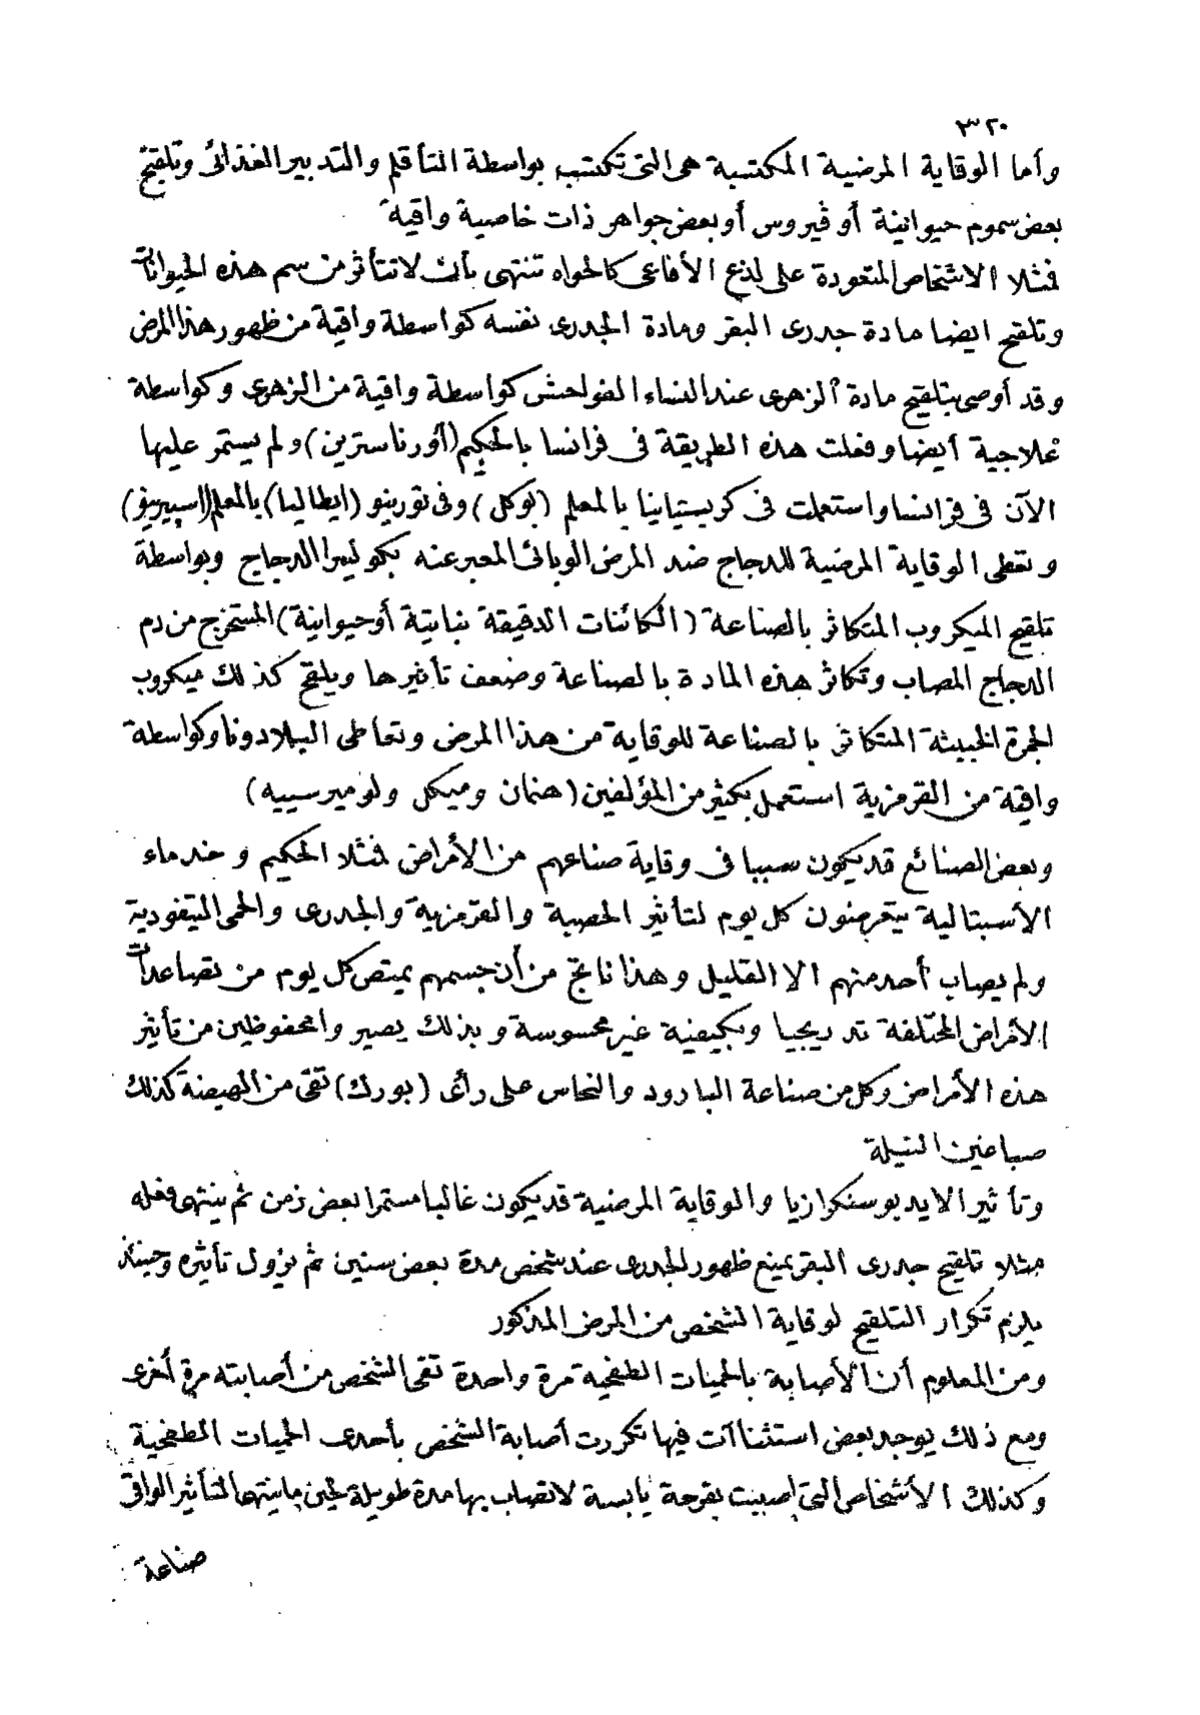 ٣٢٠
وأما الوقاية المرضية المكتسبة هى التى تكتسب بواسطة التأقلم والتدبير الغذائى وتلقيح
بعض سموم حيوانية أو ڤيروس أو بعض جواهر ذات خاصية واقية
فمثلا الاشخاص المتعودة على لدغ الأفاعى كالحواه تنتهى بأن لا تتأثر من سم هذه الحيوانات
وتلقيح ايضا مادة جدرى البقر ومادة الجدرى نفسه كواسطة واقية من ظهور هذا المرض
وقد أوصى بتلقيح مادة الزهرى عند النساء الفواحش كواسطة واقية من الزهرى وكواسطة
علاجية أيضا وفعلت هذه الطريقة فى فرانسا بالحكيم (أورناسترين) ولم يستمر عليها
الآن فى فرانسا واستعملت فى كريستيانيا بالمعلم (بوكل) وفى تورينو (ايطاليا) بالمعلم (اسپيرينو)
وتعطى الوقاية المرضية للدجاج ضد المرض الوبائى المعبر عنه بكوليرا الدجاج وبواسطة
تلقيح الميكروب المتكاثر بالصناعة (الكائنات الدقيقة نباتية أو حيوانية) المستخرج من دم
الدجاج المصاب وتكاثر هذه المادة بالصناعة وضعف تأثيرها ويلقح كذلك ميكروب
الجمرة الخبيثة المتكاثر بالصناعة للوقاية من هذا المرض وتعاطى البلادونا وكواسطة
واقية من القرمزية استعمل بكثير من المؤلفين (هنمان وميكل ولوميرسييه)
وبعض الصنائع قد يكون سببا فى وقاية صناعهم من الأمراض فمثلا الحكيم وخدماء
الأسبتالية يتعرضون كل يوم لتأثير الحصبة والقرمزية والجدرى والحمى التيفودية
ولم يصاب أحد منهم الا القليل وهذا ناتج من أن جسمهم يمتص كل يوم من تصاعدات
الأمراض المختلفة تدريجيا وبكيفية غير محسوسة وبذلك يصيروا محفوظين من تأثير
هذه الأمراض وكل من صناعة البارود والنحاس على رأى (بورك) تقى من الهيضة كذلك
صباغين النيلة
وتأثير الايديوسنكرازيا والوقاية المرضية قد يكون غالبا مستمرا بعض زمن ثم ينتهى فعله
مثلا تلقيح جدرى البقر يمنع ظهور الجدرى عند شخص مدة بعض سنين ثم يزول تأثيره وحينئذ
يلزم تكرار التلقيح لوقاية الشخص من المرض المذكور
ومن المعلوم أن الأصابة بالحميات الطفحية مرة واحدة تقى الشخص من أصابته مرة أخرى
ومع ذلك يوجد بعض استثناآت فيها تكررت أصابة الشخص بأحدى الحميات الطفحية
وكذلك الأشخاص التى اصيبت بقرحة يابسة لا تصاب بها مدة طويلة لحين ما ينتهى التأثير الواقى
صناعة